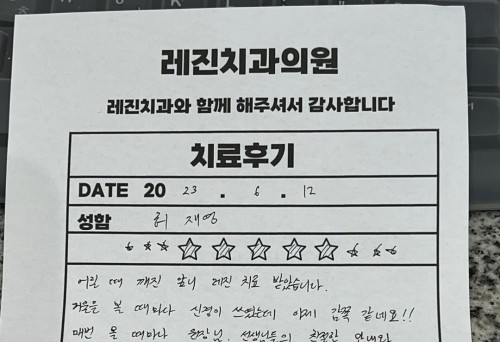 레진치과의원
레진치과와 함께 해주셔서 감사합니다
치료후기
DATE 20 23 . 6 . 12
성함 허 재영
어릴 때 깨진 앞니 레진 치료 받았습니다.
거울을 볼 때마다 신경이 쓰였는데 이제 감쪽 같네요!!
매번 올 때마다 원장님, 선생님들의 친절한 안내와